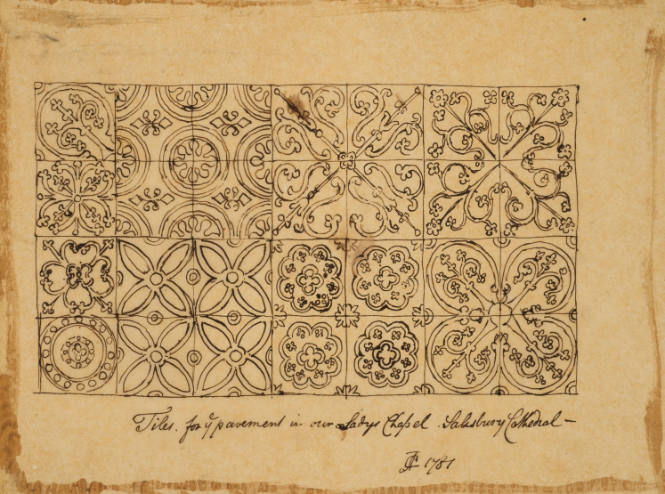 Tiles. for y pavement in our Ladys Chapel. Salesbury Cathedral —
JC 1781